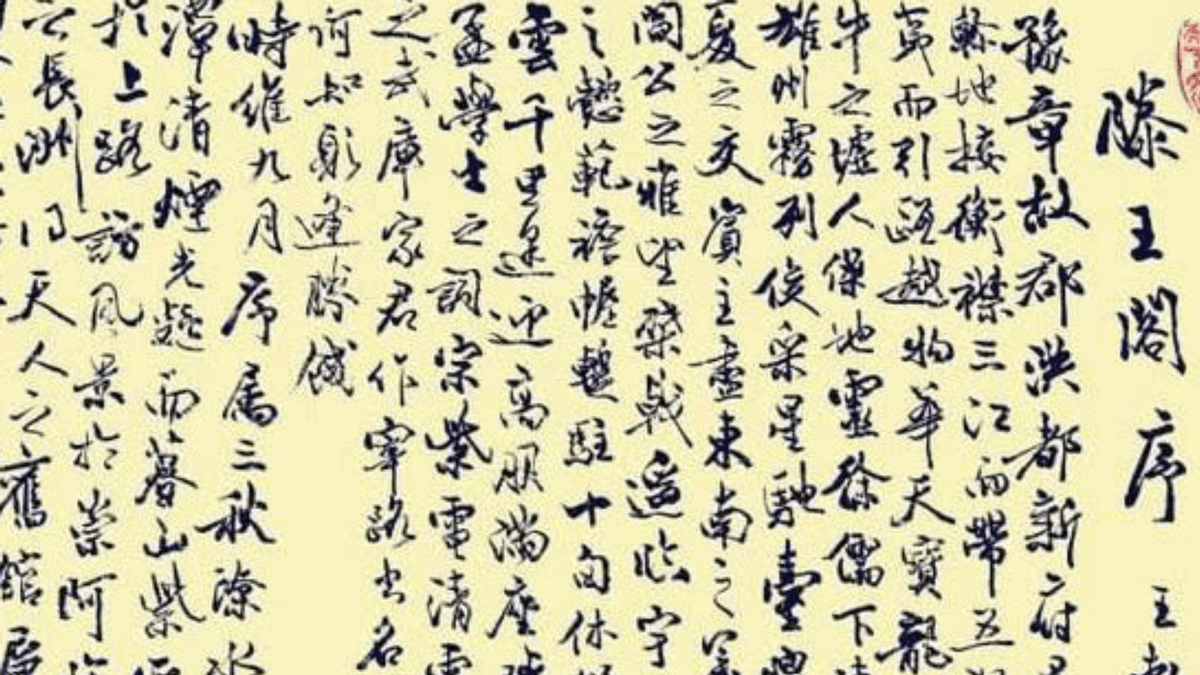 滕王閣序 王
豫章故郡洪都新府
軫地接衡襟三江而帶五
而引甌越物華天寶龍
牛之墟人傑地靈徐孺下
雄州霧列俊采星馳臺隍
夏之交賓主盡東南之美
閻公之雅望棨戟遙臨宇
之懿範襜帷暫駐十旬休
雲千里逢迎高朋滿座
孟學士之詞宗紫電清霜
之武庫家君作宰路出名
何知躬逢勝餞
時維九月序屬三秋潦水
潭清煙光凝而暮山紫
於上路訪風景於崇阿
之長洲得天人之舊館層